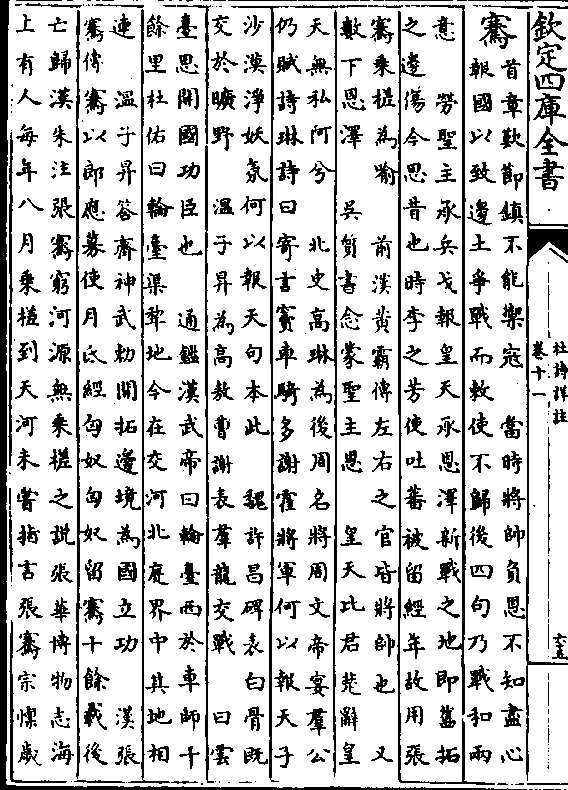 欽定四庫全書
杜詩詳註
卷十一
六五
騫
首章歎節鎮不能禦寇 當時將帥負恩不知盡心
報國以致邊土爭戰而敕使不歸後四句乃戰和兩
意 勞聖主承兵戈報皇天承恩澤新戰之地即舊拓
之邊傷今思昔也時李之芳使吐蕃被留經年故用張
騫乘槎為喻 前漢黃霸傳左右之官皆將帥也 又
數下恩澤 吳質書念蒙聖主恩 皇天比君楚辭皇
天無私阿兮 北史高琳為後周名將周文帝宴羣公
仍賦詩琳詩曰寄言竇車騎多謝霍將軍何以報天子
沙漠淨妖氛何以報天句本此 魏許昌碑表白骨既
交於曠野 溫子昇為高敖曹謝表羣龍交戰 曰雲
臺思開國功臣也 通鑑漢武帝曰輪臺西於車師千
餘里杜佑曰輪臺渠犂地今在交河北庭界中其地相
連 溫子昇答齊神武勅開拓邊境為國立功 漢張
騫傳騫以郎應募使月氏經匈奴匈奴留騫十餘歲後
亡歸漢朱注張騫窮河源無乘槎之說張華博物志海
上有人每年八月乘槎到天河未嘗指言張騫宗懍歲